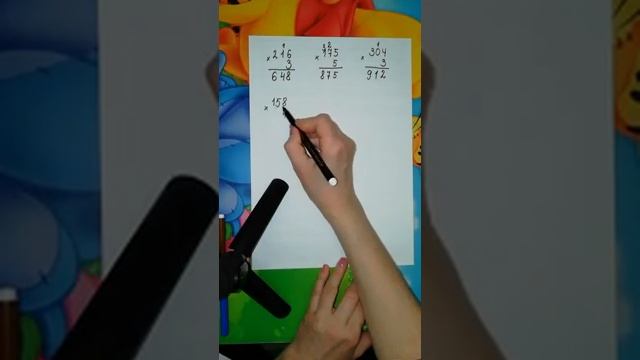 1 32 1
× 216 × 175 × 304
3 5 3
648 875 912
× 158